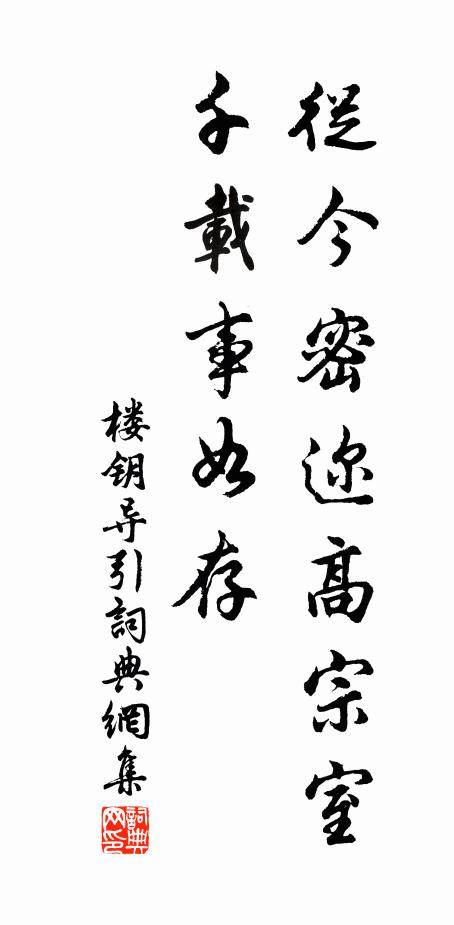 從今密邇高宗室
千載事如存
楼钥导引詞典網集
詞典网印